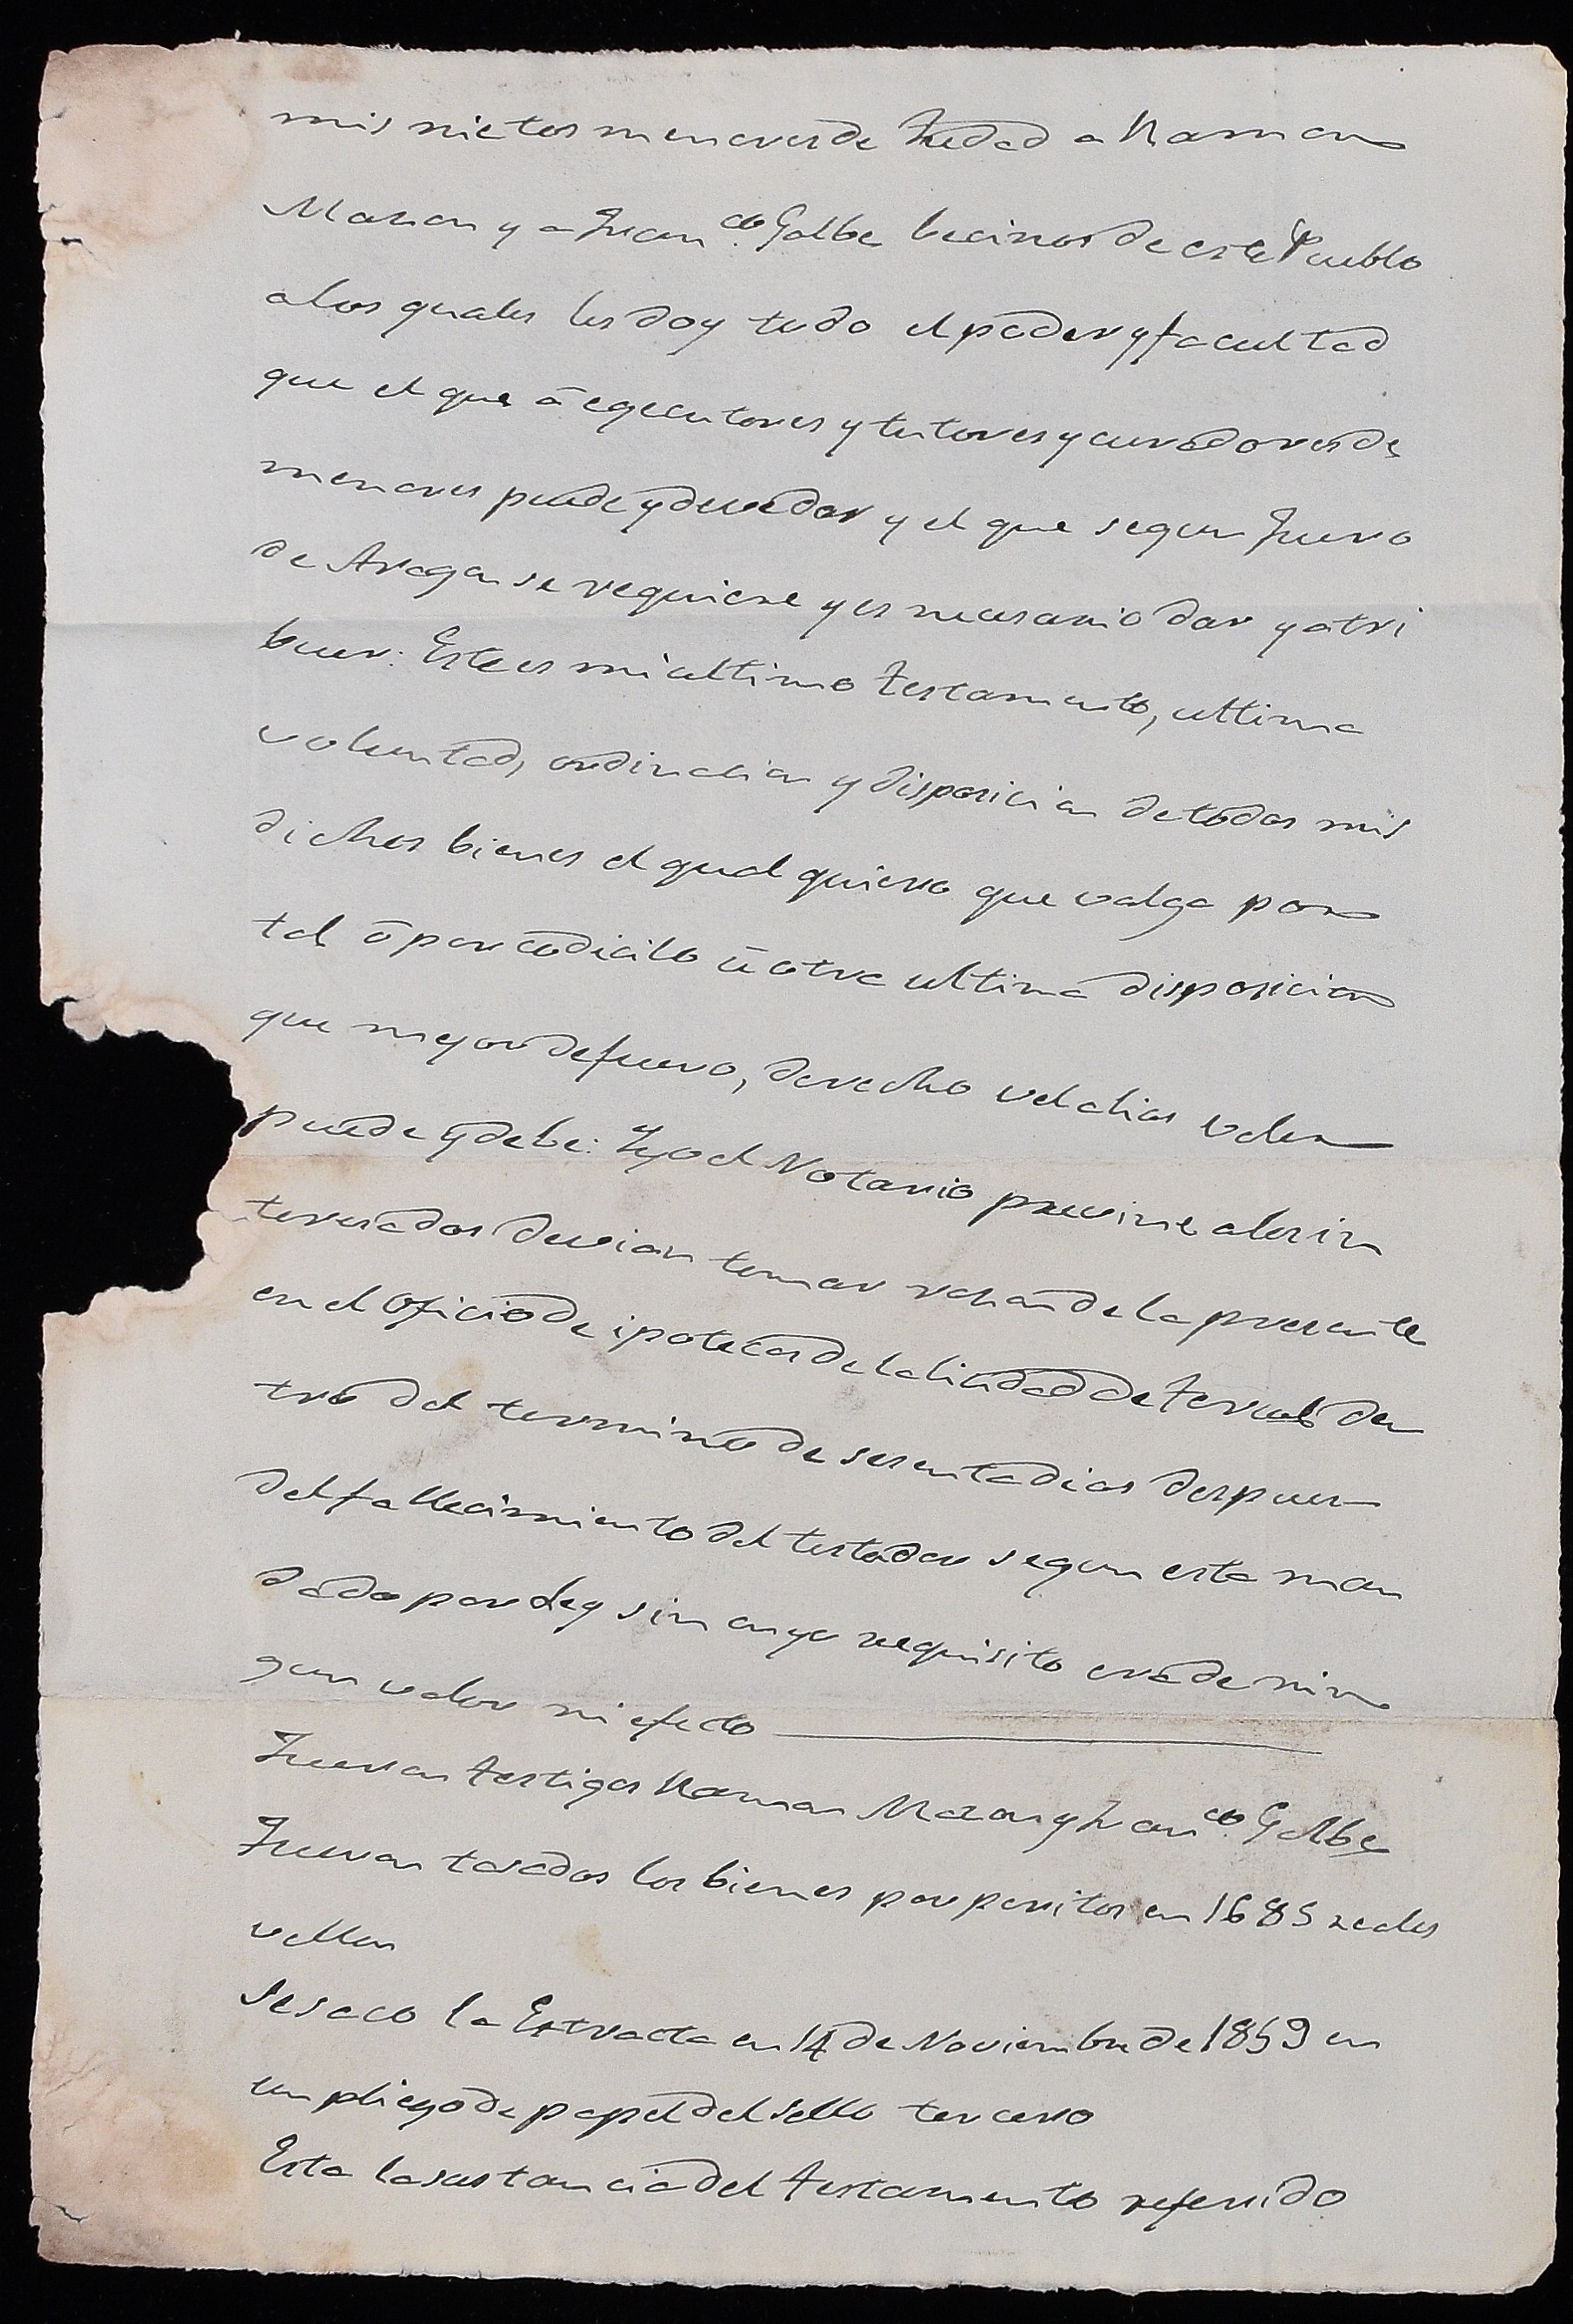 mis nietos menores de hedad a Ramon
Maron y a Fran.co Galbe becinos de este Pueblo
alos quales les doy todo el poder y facultad
que el que á egecutores y tutores y curadores de
menores puede y deve dar y el que segun fuero
de Aragon se requiere y es necesario dar y atri
buir: Este es mi ultimo testamento, ultima
voluntad, ordinacion y disposicion de todos mis
dichos bienes el qual quiero que valga por
tal ó por codicilo ú otra ultima disposicion
que mejor de fuero, derecho vel alias valer
puede y debe: Hyo el Notario previne alos in
teresados devian tomar rahon de la presente
en el oficio de ipotecas de la Ciudad de Teruel den
tro del termino de sesenta dias despues
del fallecimiento del testador segun esta man
dado por ley sin cuyo requisito era de nin
gun valor ni efecto
Fueron testigos Ramon Maron y Fran.co Galbe
Fueron tasados los bienes por peritos en 1685 reales
vellon
Se saco la Extracta en 14 de Noviembre de 1859 en
un pliego de papel del sello tercero
Esta la sustancia del testamento referido